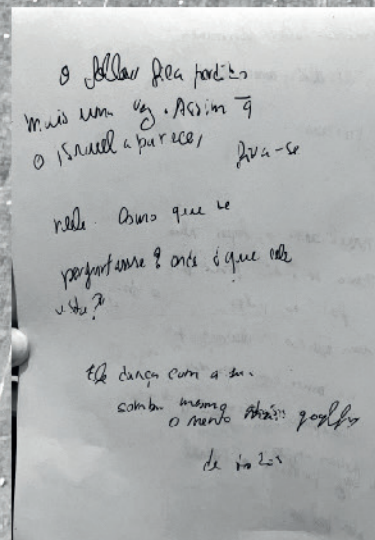 O follow fica perdido
mais uma vez. Assim q̄
o Israel aparece,
fixa-se
nele. Como que se
perguntasse? onde é que ele
esta?
Ele dança com a su.
sombra mesmo
o mento
de